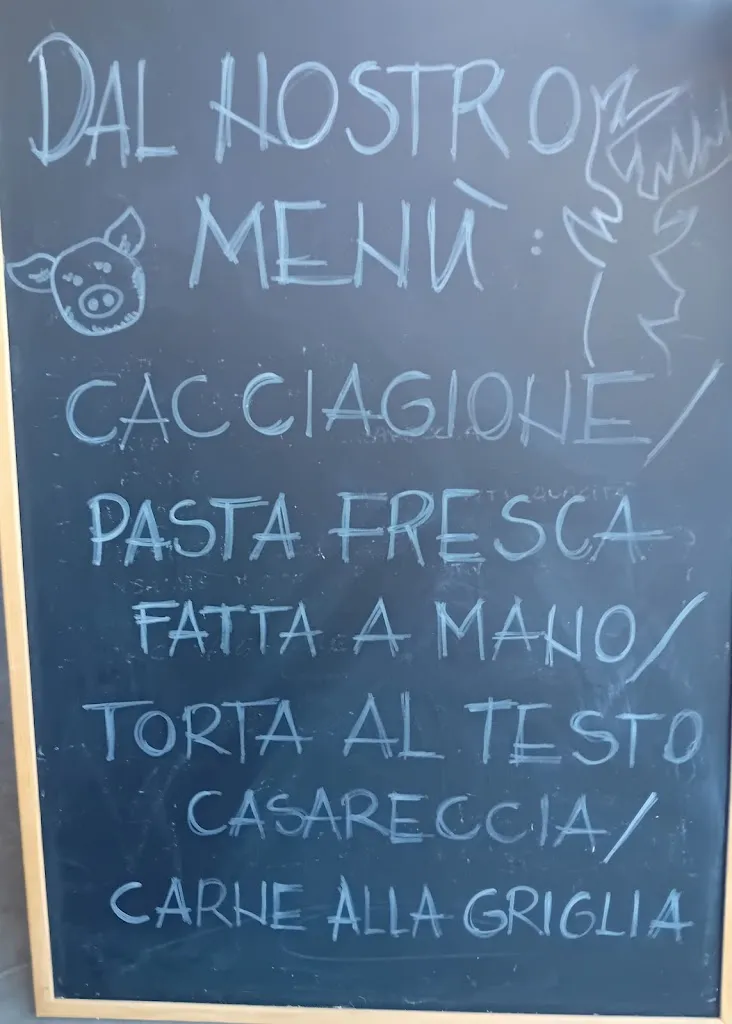 DAL NOSTRO
MENÙ:
CACCIAGIONE/
PASTA FRESCA
FATTA A MANO/
TORTA AL TESTO
CASARECCIA/
CARNE ALLA GRIGLIA